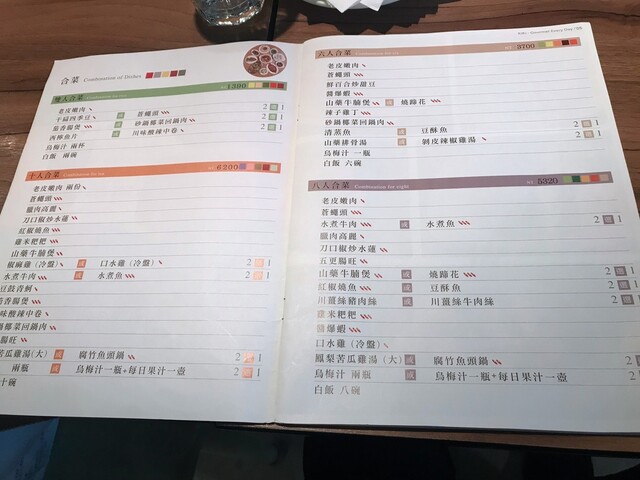 合菜 Combination of Dishes
雙人合菜 NT 1390
老皮嫩肉
干扁四季豆 或 蒼蠅頭 2選1
茄香腸煲 或 砂鍋椰菜回鍋肉 2選1
或 川味酸辣中卷 2選1
烏梅汁 兩杯
白飯 兩碗
十人合菜 Combination for ten NT 6200
老皮嫩肉 兩份
蒼蠅頭
臘肉高麗
刀口椒炒水蓮
紅椒燒魚
雞米粑粑
山藥牛腩煲
椒麻雞(冷盤) 或 口水雞(冷盤) 2選1
水煮牛肉 或 水煮魚 2選1
豆鼓青蚵
香腸煲
味酸辣中卷
鍋椰菜回鍋肉
腸旺
苦瓜雞湯(大) 或 腐竹魚頭鍋 2選1
兩瓶 或 烏梅汁一瓶+每日果汁一壺 2選1
十碗
六人合菜 Combination for six NT 3700
老皮嫩肉
蒼蠅頭
鮮百合炒甜豆
醬爆蝦
山藥牛腩煲 或 燒蹄花 2選1
辣子雞丁
砂鍋椰菜回鍋肉
清蒸魚 或 豆酥魚 2選1
山藥排骨湯 或 剝皮辣椒雞湯 2選1
烏梅汁 一瓶
白飯 六碗
八人合菜 Combination for eight NT 5320
老皮嫩肉
蒼蠅頭
水煮牛肉 或 水煮魚 2選1
臘肉高麗
刀口椒炒水蓮
五更腸旺
山藥牛腩煲 或 燒蹄花 2選1
紅椒燒魚 或 豆酥魚 2選1
川薑絲豬肉絲 或 川薑絲牛肉絲 2選1
雞米粑粑
醬爆蝦
口水雞(冷盤)
鳳梨苦瓜雞湯(大) 或 腐竹魚頭鍋 2選1
烏梅汁 兩瓶 或 烏梅汁一瓶+每日果汁一壺 2選1
白飯 八碗